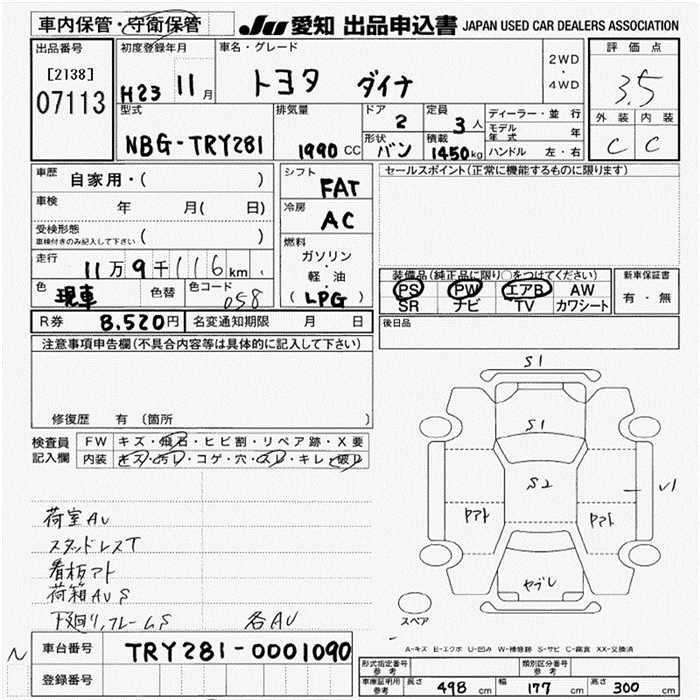 車内保管・守衛保管
JU 愛知 出品申込書 JAPAN USED CAR DEALERS ASSOCIATION
出品番号
[2138]
07113
初度登録年月
H23 11月
車名・グレード
トヨタ ダイナ
2WD
・
4WD
評価点
3.5
外装 内装
C C
型式
NBG-TRY281
排気量
1990 CC
ドア
2
形状
バン
定員
3人
積載
1450kg
ディーラー・並行
モデル年式 年
ハンドル 左・右
車歴 自家用・( )
車検 年 月( 日)
受検形態
車検付きのみ記入して下さい ( )
走行
11万9千116km
色
現車
色替
色コード
058
シフト
FAT
冷房
AC
燃料
ガソリン
・
軽・油
(LPG)
セールスポイント(正常に機能するものに限ります)
装備品(純正品に限り○をつけてください)
PS PW エアB AW
SR ナビ TV カワシート
新車保証書
有・無
R券 8.520円
名変通知期限 月 日
後日品
注意事項申告欄(不具合内容等は具体的に記入して下さい)
修復歴 有 〔箇所 〕
検査員
記入欄
FW キズ・飛石・ヒビ割・リペア跡・X要
内装 キズ・汚レ・コゲ・穴・スレ・キレ・破レ
荷室AU
スタッドレスT
看板アト
荷箱AUS
下廻り,フレームS 各AU
S1
S1
S2
ヤアト
ヤアト
V1
ヤブレ
スペア
A-キズ E-エクボ U-凹み W-補修跡 S-サビ C-腐食 XX-交換済
N
車台番号 TRY281-0001090
登録番号
形式指定番号
参考
類別区分番号
参考
車庫証明用
参考
長さ 498 cm 幅 177 cm 高さ 300 cm